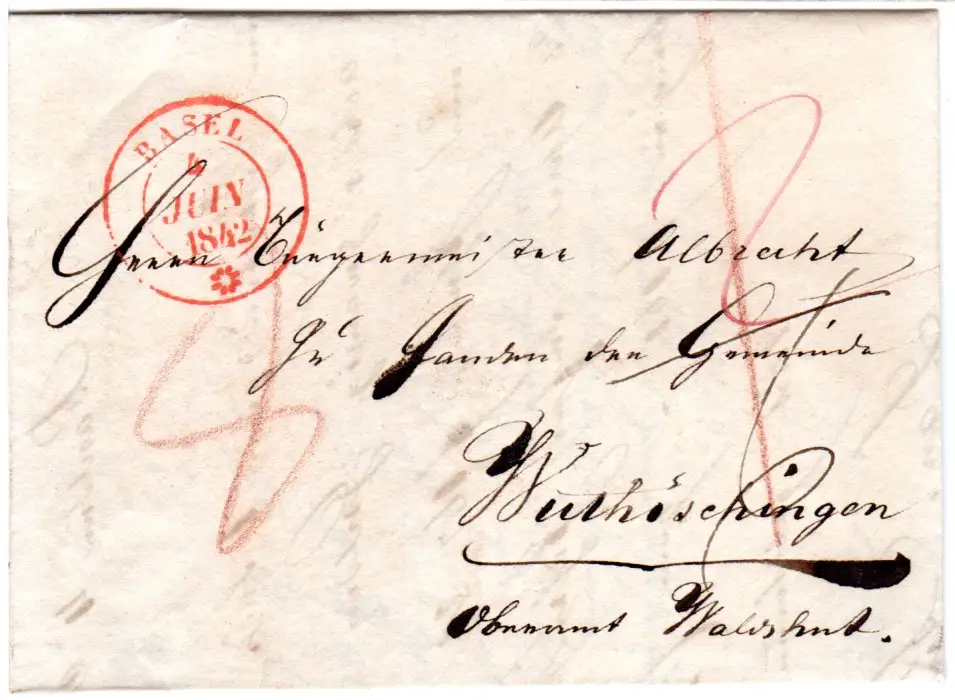 BASEL
4
JUIN
1842
Herrn Bürgermeister Albrecht
zu Handen der Gemeinde
Wuthöschingen
Oberamt Waldshut.